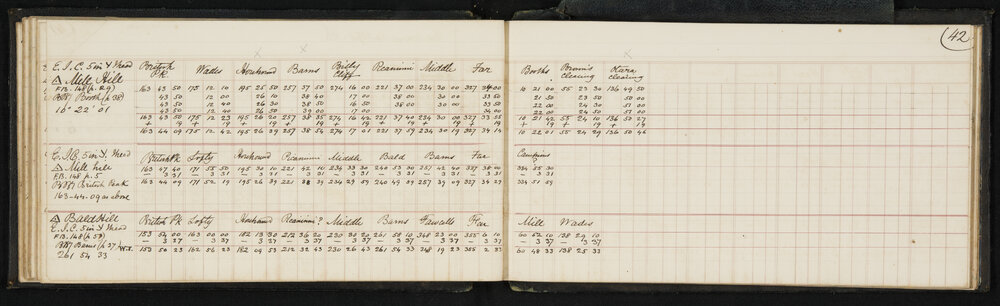 42
E.I.C. 5in Y Theod
British Pk Wades Horehound Barns Bielby Cliff Reanimi Middle Far Booths Brown's Clearing Kiara Clearing
△ Mill Hill
F.B. 148 (p. 29) 163 43 50 175 12 10 195 25 50 257 37 50 274 16 00 221 37 00 234 30 00 327 34 00 10 21 00 55 23 30 136 49 50
Booth (p 38) 43 50 12 00 26 10 38 40 17 00 38 00 30 00 33 50 22 00 24 30 51 00
10° 22' 01 43 50 12 40 26 30 38 50 16 50 38 00 30 00 33 50 22 00 24 30 51 00
43 50 12 40 26 50 39 00 34 00 22 00 24 50 51 00
163 43 50 175 12 23 195 26 20 257 38 35 274 16 42 221 37 40 234 30 00 327 33 55 10 21 42 55 24 10 136 50 27
+ 19 + 19 + 19 + 19 + 19 + 19 + 19 + 19 + 19 + 19 + 19
163 44 09 175 12 42 195 26 39 257 38 54 274 17 01 221 37 59 234 30 19 327 34 14 10 22 01 55 24 29 136 50 46
E.I.C. 5in Y. Theod British Pk Lofty Horehound Reanimi Middle Bald Barns Far
△ Mill hill 163 47 40 171 55 50 195 30 10 221 42 10 234 33 30 240 53 30 257 42 40 327 38 00 334 55 30
F.B. 148 p. 5 — 3 31 — 3 31 — 3 31 — 3 31 — 3 31 — 3 31 — 3 31 — 3 31 — 3 31
British Park 163 44 09 171 52 19 195 26 39 221 38 39 234 29 59 240 49 59 257 39 09 327 34 29 334 51 59
163-44-09 as above
△ Bald Hill British Pk Lofty Horehound Reanimi? Middle Barns Fawcetts Far Mill Wades
E.I.C. 5in Y Theod 153 54 00 163 00 00 182 13 30 212 36 20 230 30 20 261 58 10 348 23 00 355 6 10 60 52 10 138 29 10
F.B. 148 (p. 53) — 3 37 — 3 37 — 3 37 — 3 37 — 3 37 — 3 37 — 3 37 — 3 37 — 3 37 — 3 37
Barns (p 37) 153 50 23 162 56 23 182 09 53 212 32 43 230 26 43 261 54 33 348 19 23 355 2 33 60 48 33 138 25 33
261 54 33